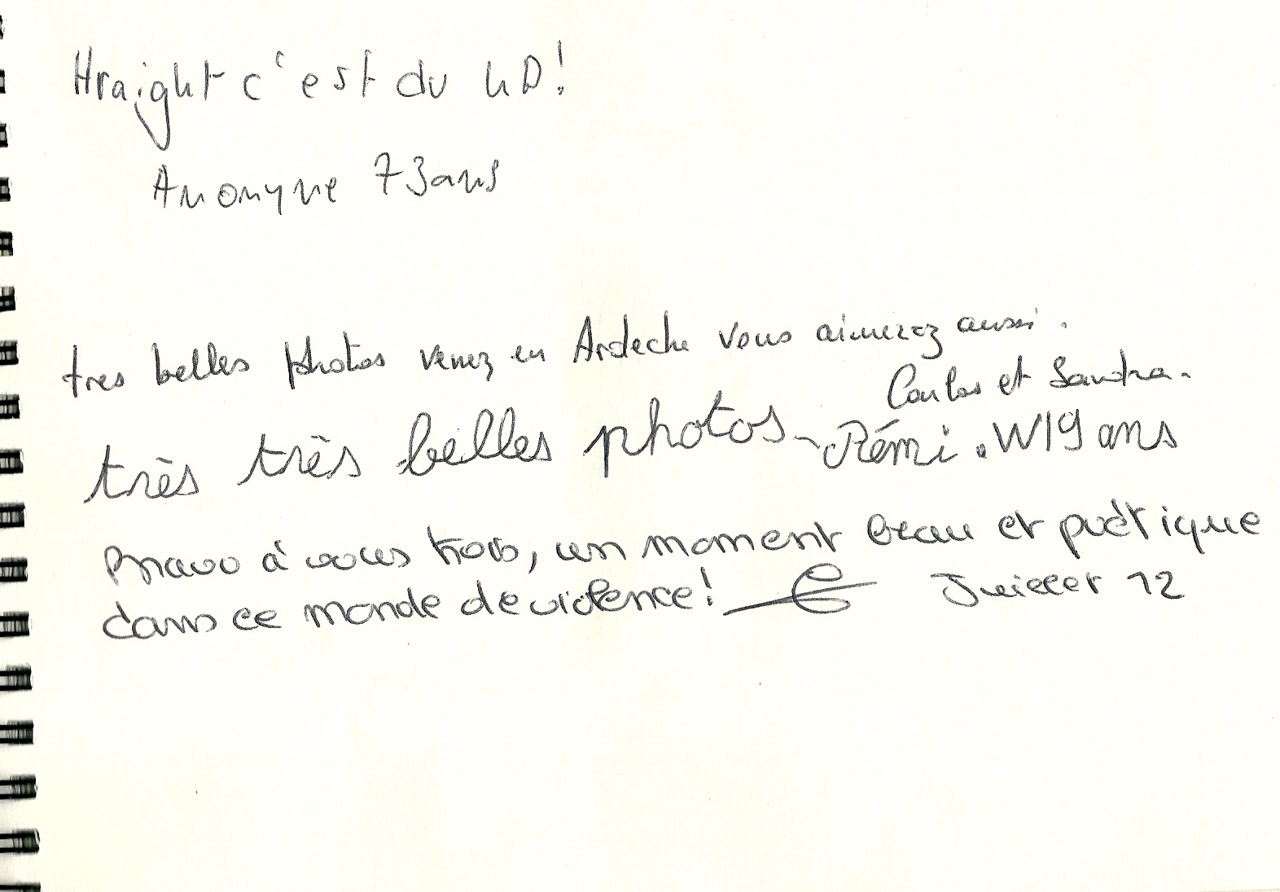 c'est du HD!
Anonyme 73ans
tres belles photos venez en Ardeche vous aimerez aussi.
Carlos et Sandra.
très très belles photos Rémi.W19 ans
Bravo à vous trois, un moment beau et poétique
dans ce monde de violence! Juillet 12